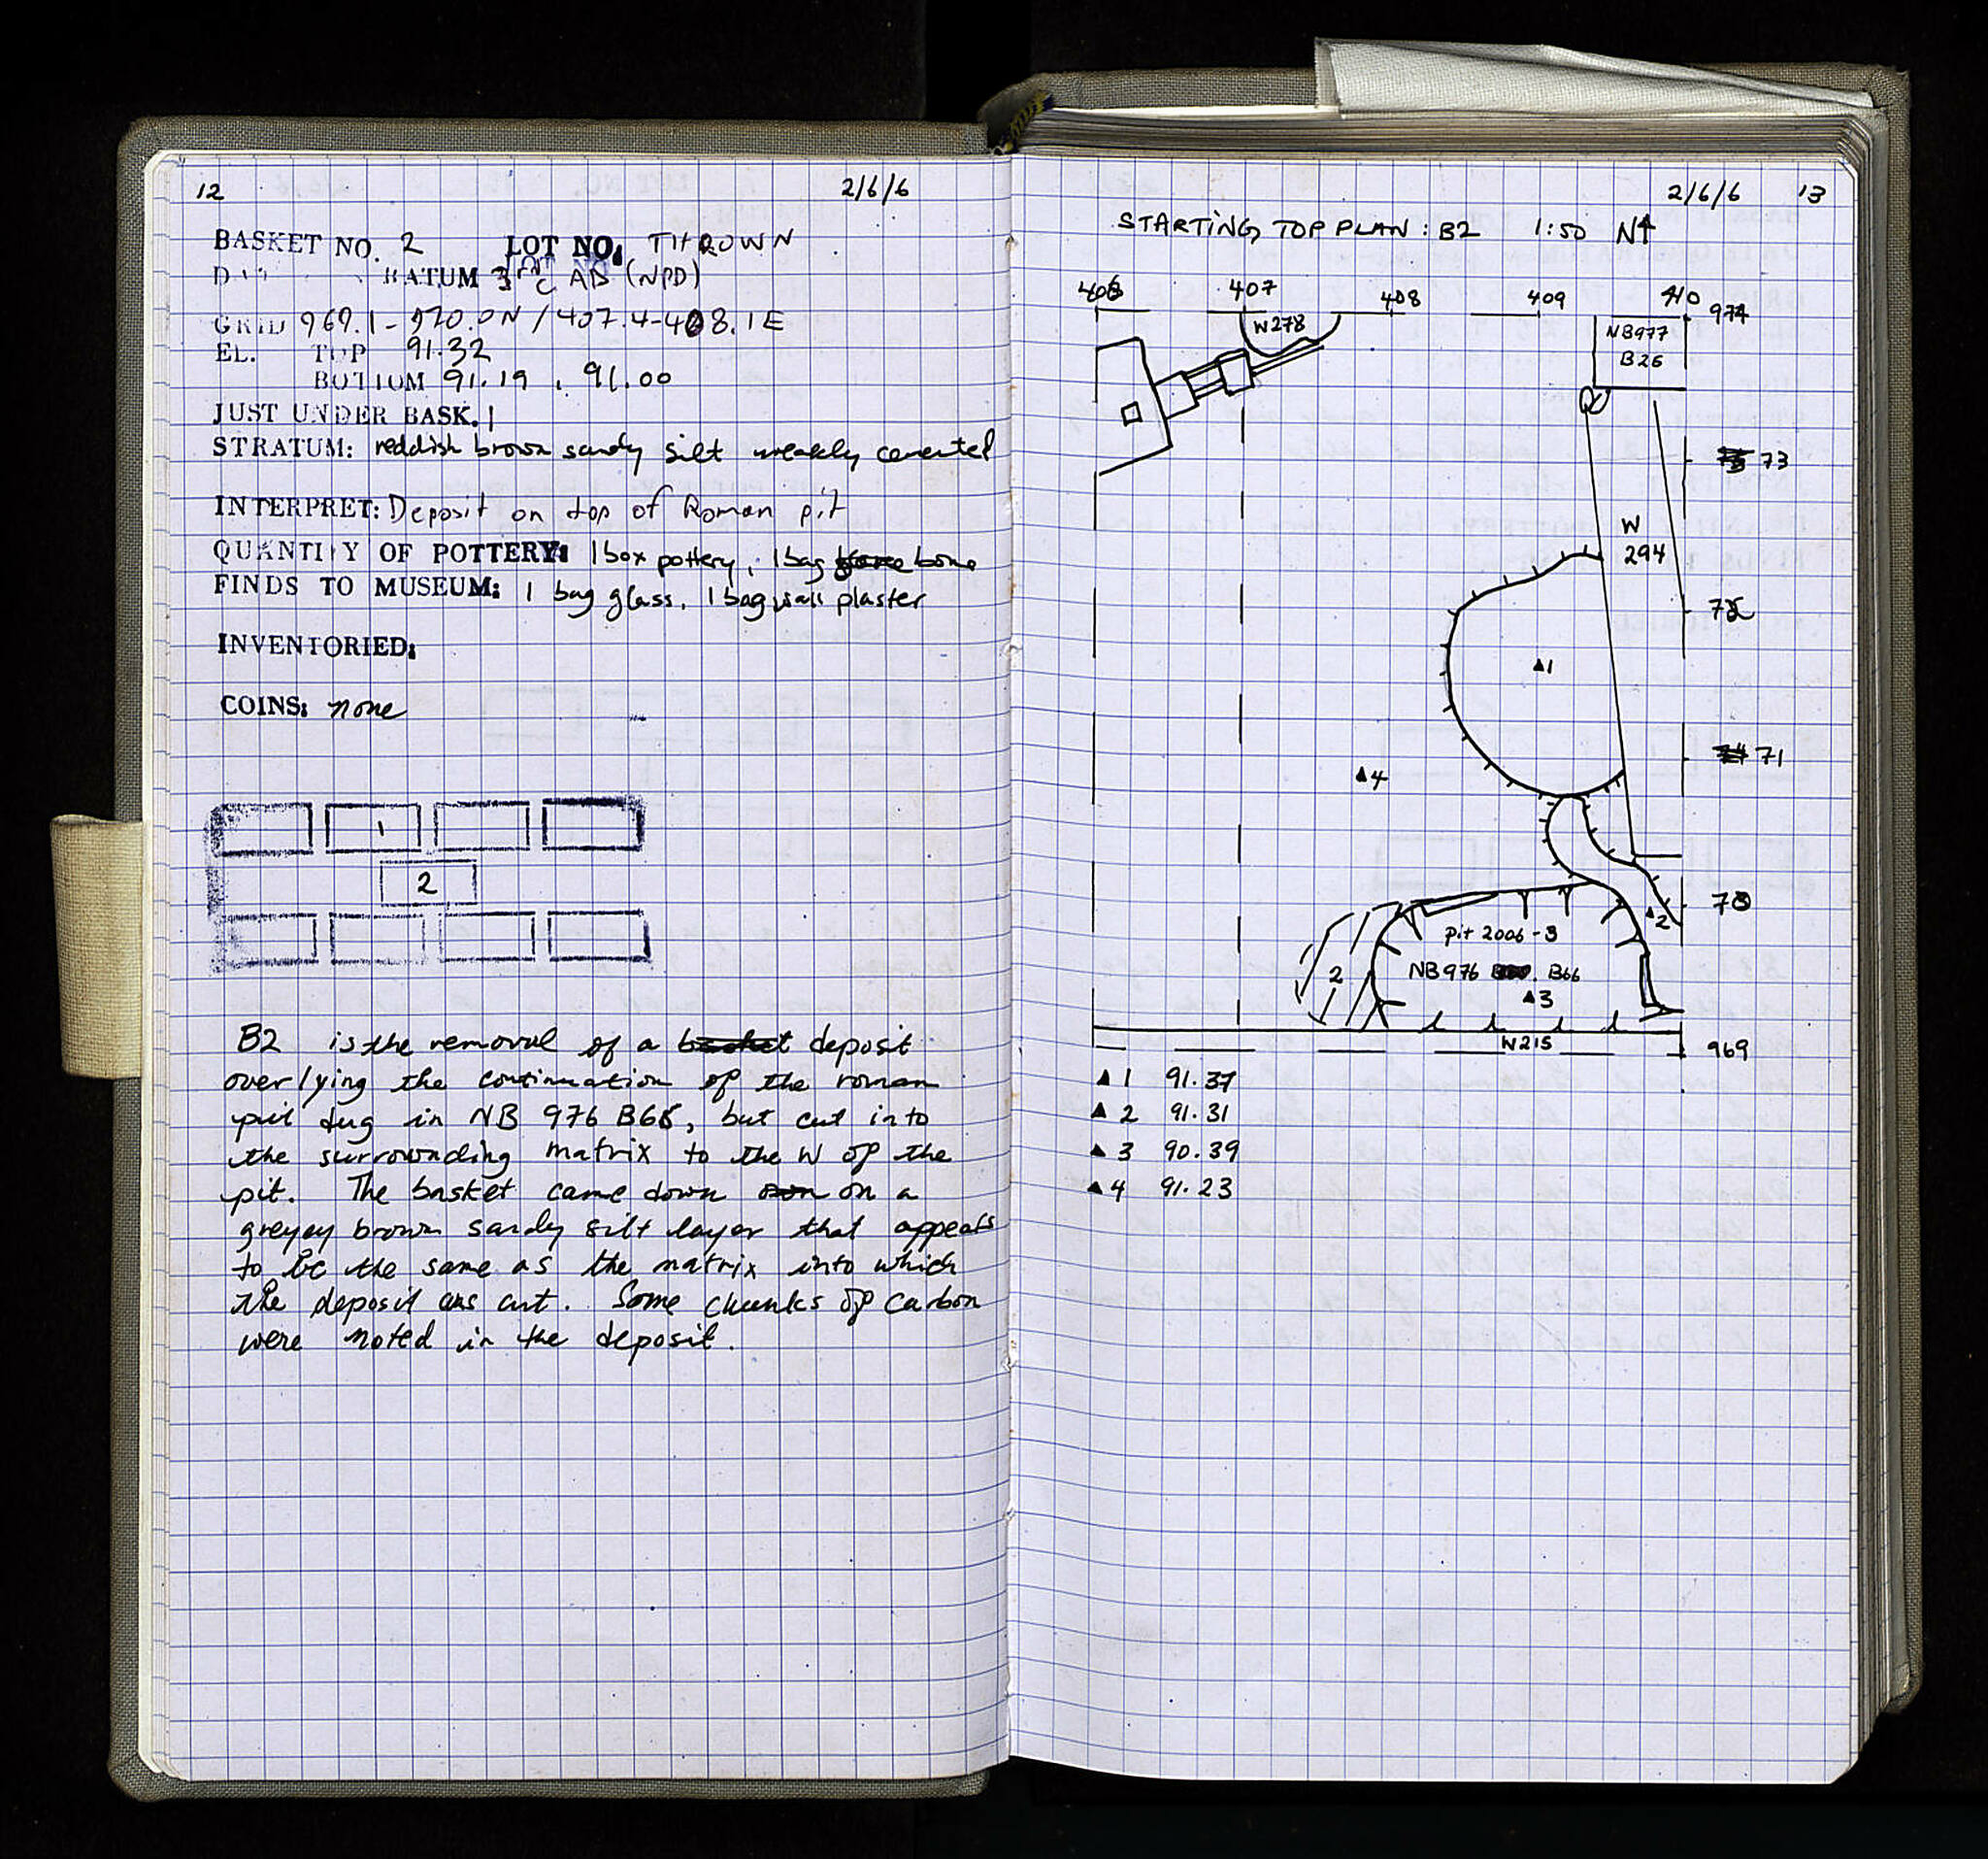 12
2/6/6
BASKET NO. 2 LOT NO: THROWN
RATUM 3rd C AD (NPD)
GRID 969.1-970.0N / 407.4-408.1E
EL. TOP 91.32
BOTTOM 91.19, 91.00
JUST UNDER BASK. 1
STRATUM: reddish brown sandy silt weakly cemented
INTERPRET: Deposit on top of Roman pit
QUANTITY OF POTTERY: 1 box pottery, 1 bag bone
FINDS TO MUSEUM: 1 bag glass, 1 bag wall plaster
INVENTORIED:
COINS: none
1
2
B2 is the removal of a basket deposit
overlying the continuation of the roman
pit dug in NB 976 B66, but cut into
the surrounding matrix to the W of the
pit. The basket came down on a
greyey brown sandy silt layer that appears
to be the same as the matrix into which
the deposit was cut. Some chunks of carbon
were noted in the deposit.
2/6/6 13
STARTING TOP PLAN: B2 1:50 N↑
406 407 408 409 410 974
W278
NB977
B26
73
W
294
72
▲1
71
▲4
70
▲2
pit 2006-3
2
NB976 B66
▲3
W215
969
▲1 91.37
▲2 91.31
▲3 90.39
▲4 91.23